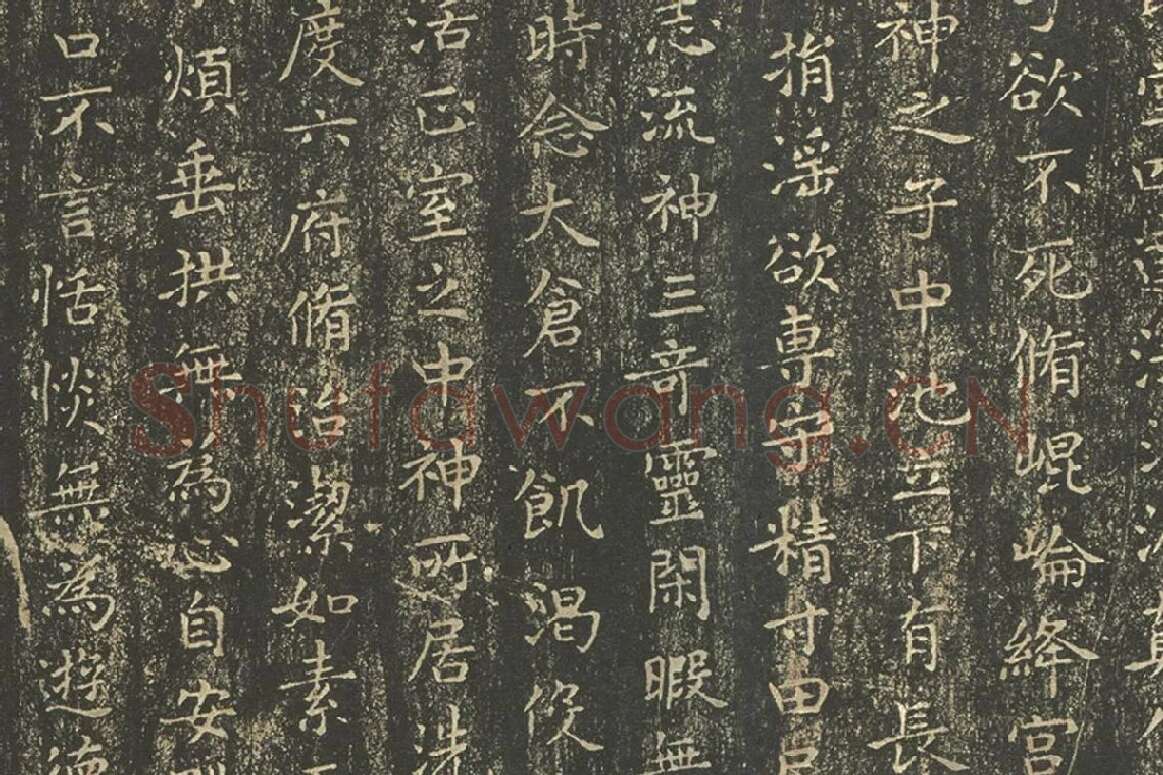 欲不死脩崐崘絳宮
神之子中池立下有長
捐滛欲専守精寸田尺
志流神三竒靈閑暇無
時念大倉不飢渴役
活正室之中神所居洗
度六府脩治潔如素
煩垂拱無為心自安
口不言恬惔無為遊德
Shufawang.CN